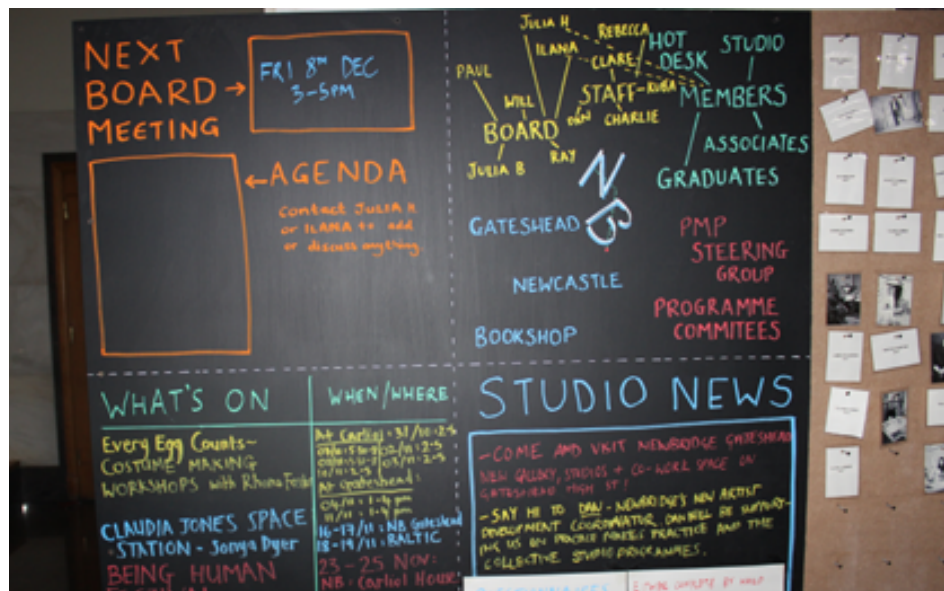 NEXT
BOARD →
MEETING
FRI 8TH DEC
3-5PM
← AGENDA
CONTACT JULIA H
OR ILANA to add
or discuss anything.
JULIA H
REBECCA
ILANA
CLARE
PAUL
WILL
STAFF
RUBA
DAN
CHARLIE
BOARD
JULIA B
RAY
HOT
DESK
STUDIO
MEMBERS
ASSOCIATES
GRADUATES
NB
GATESHEAD
NEWCASTLE
BOOKSHOP
PMP
STEERING
GROUP
PROGRAMME
COMMITEES
WHAT'S ON
Every Egg Counts~
COSTUME MAKING
WORKSHOPS with Rhona
CLAUDIA JONES SPACE
STATION - Sonya Dyer
BEING HUMAN
WHEN/WHERE
At Carliol: 31/10: 2-5
At Gateshead:
04/11: 1-4pm
11/11: 1-4pm
16-17/11: NB Gateshead
18-19/11: BALTIC
23-25 Nov:
NB: Carliol House
STUDIO NEWS
-COME AND VISIT NEWBRIDGE GATESHEAD
NEW GALLERY, STUDIOS + CO-WORK SPACE ON
GATESHEAD HIGH ST!
-SAY HI TO DAN - NEWBRIDGE'S NEW ARTIST
DEVELOPMENT COORDINATOR. DAN WILL BE SUPPORT-
ING US ON PRACTICE MAKES PRACTICE AND THE
COLLECTIVE STUDIO PROGRAMMES.